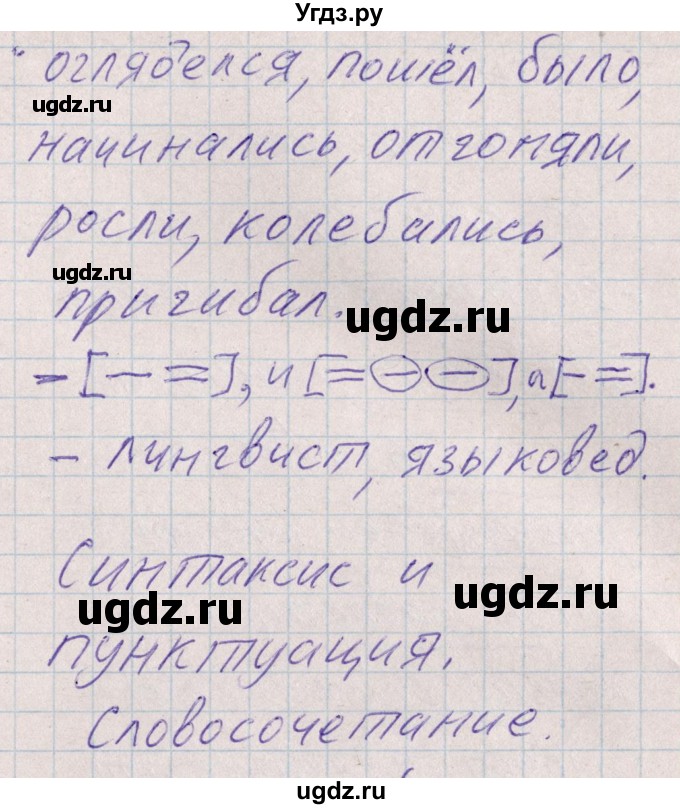 Угдз.ру
огляделся, пошёл, было,
ugdz.ru
начинались, отгоняли,
росли, колебались,
ugdz.ru
пригибал.
ugdz.ru
- [— =], и [= — —], а [— =].
- лингвист, языковед.
Синтаксис и
ugdz.ru ugdz.ru
пунктуация.
Словосочетание.
ugdz.ru